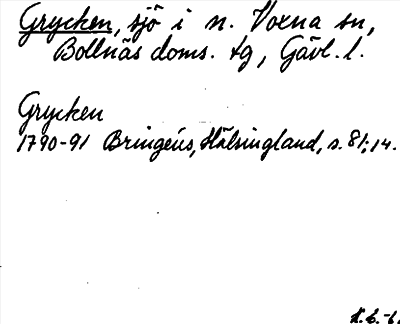 Grycken, sjö i n. Voxna sn,
Bollnäs doms. tg, Gävl. l.
Grycken
1790-91 Bringéus, Hälsingland, s. 81; 14.